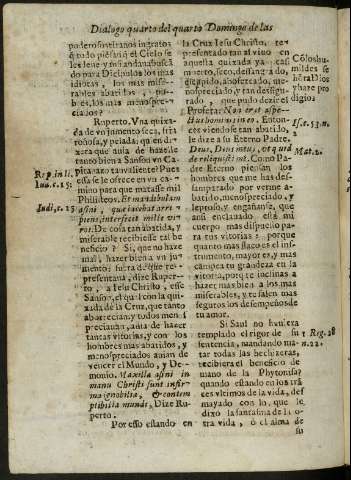 Dialogo quarto del quarto Domingo de las
poderosos tiranos ingratos
q todo piēsan q el Cielo se
les deue, y assi andaua buscā
do para Dicipulos los mas
idiotas, los mas misera-
rables abatidos, po-
bres, los mas menospre-
ciados?
Ruperto. Vna quixa-
da de vn jumento seca, fria
roñosa, y pelada; quien di-
xera que auia de hazerle
tanto bien a Sanson vn Ca-
pitanazo tan valiente? Pues
essa se le ofrece en vn ca-
mino para que matasse mil
Philisteos. Et mandibulam
asini, que iacebat arri-
piens, interfecit mille vi-
ros. De cosa tan abatida, y
miserable recibiesse tal be-
neficio? Si, que no haze
mal, hazer bien a vn ju-
mento: fuera de que esse
representana, dize Ruper-
to, a Iesu Christo, esse
Sanson, el qual con la quixa-
da de la Cruz, que tanto
aborrecian, y todos menos
preciauan, auia de hazer
tantas vitorias, y con los
hombres mas abatidos, y
menospreciados auian de
vencer el Mundo, y De-
monio. Maxilla asini in
manu Christi sunt infir-
ma ignobilia, & contem
ptibilia mundi, Dize Ru-
perto.
Por esso estando en
Rep. in li.
Iud. c. 15.
Iudi, c. 15
la Cruz Iesu Christo, re-
presentado tan al viuo en
aquella quixada ya casi
muerto, seco, dessangrado,
denegrido, abatido, menos-
preciado, y tan desfigura-
do, que pudo dezir del el
Profeta: Non erat aspe-
ctus hominis in eo. Enton-
ces viendose tan abatido,
le dize a su Eterno Padre.
Deus, Deus meus, vt quid
de reliquisti me. Como Pa-
dre Eterno piensan los
hombres que me has des-
amparado por verme a-
batido, menospreciado, y
leproso, y engañanse, que
assi enclauado està mi
cuerpo mas dispuesto pa-
ra tus vitorias: porque
quanto mas flaco es el ins-
trumento, mayor es, y mas
campea tu grandeza en la
vitoria, porq te inclinas a
hazer mas bien a los mas
miserables, y te salen mas
seguros los desempeños de
tu amor.
Si Saul no huuiera
templado el rigor de su
sentencia, mandando ma-
tar todas las hechizeras,
recibiera el beneficio de
mano de la Phytonisa?
quando estando en los trā
ces vltimos de la vida, des
mayado con lo que le
dixo la fantasma de la o-
tra vida, ò el alma de
su
Cō los hu-
mildes se
hōra Dios
y haze pro
digios
Isa. 53. n.
2.
Mat. 2.
1 Reg. 28
n. 22.